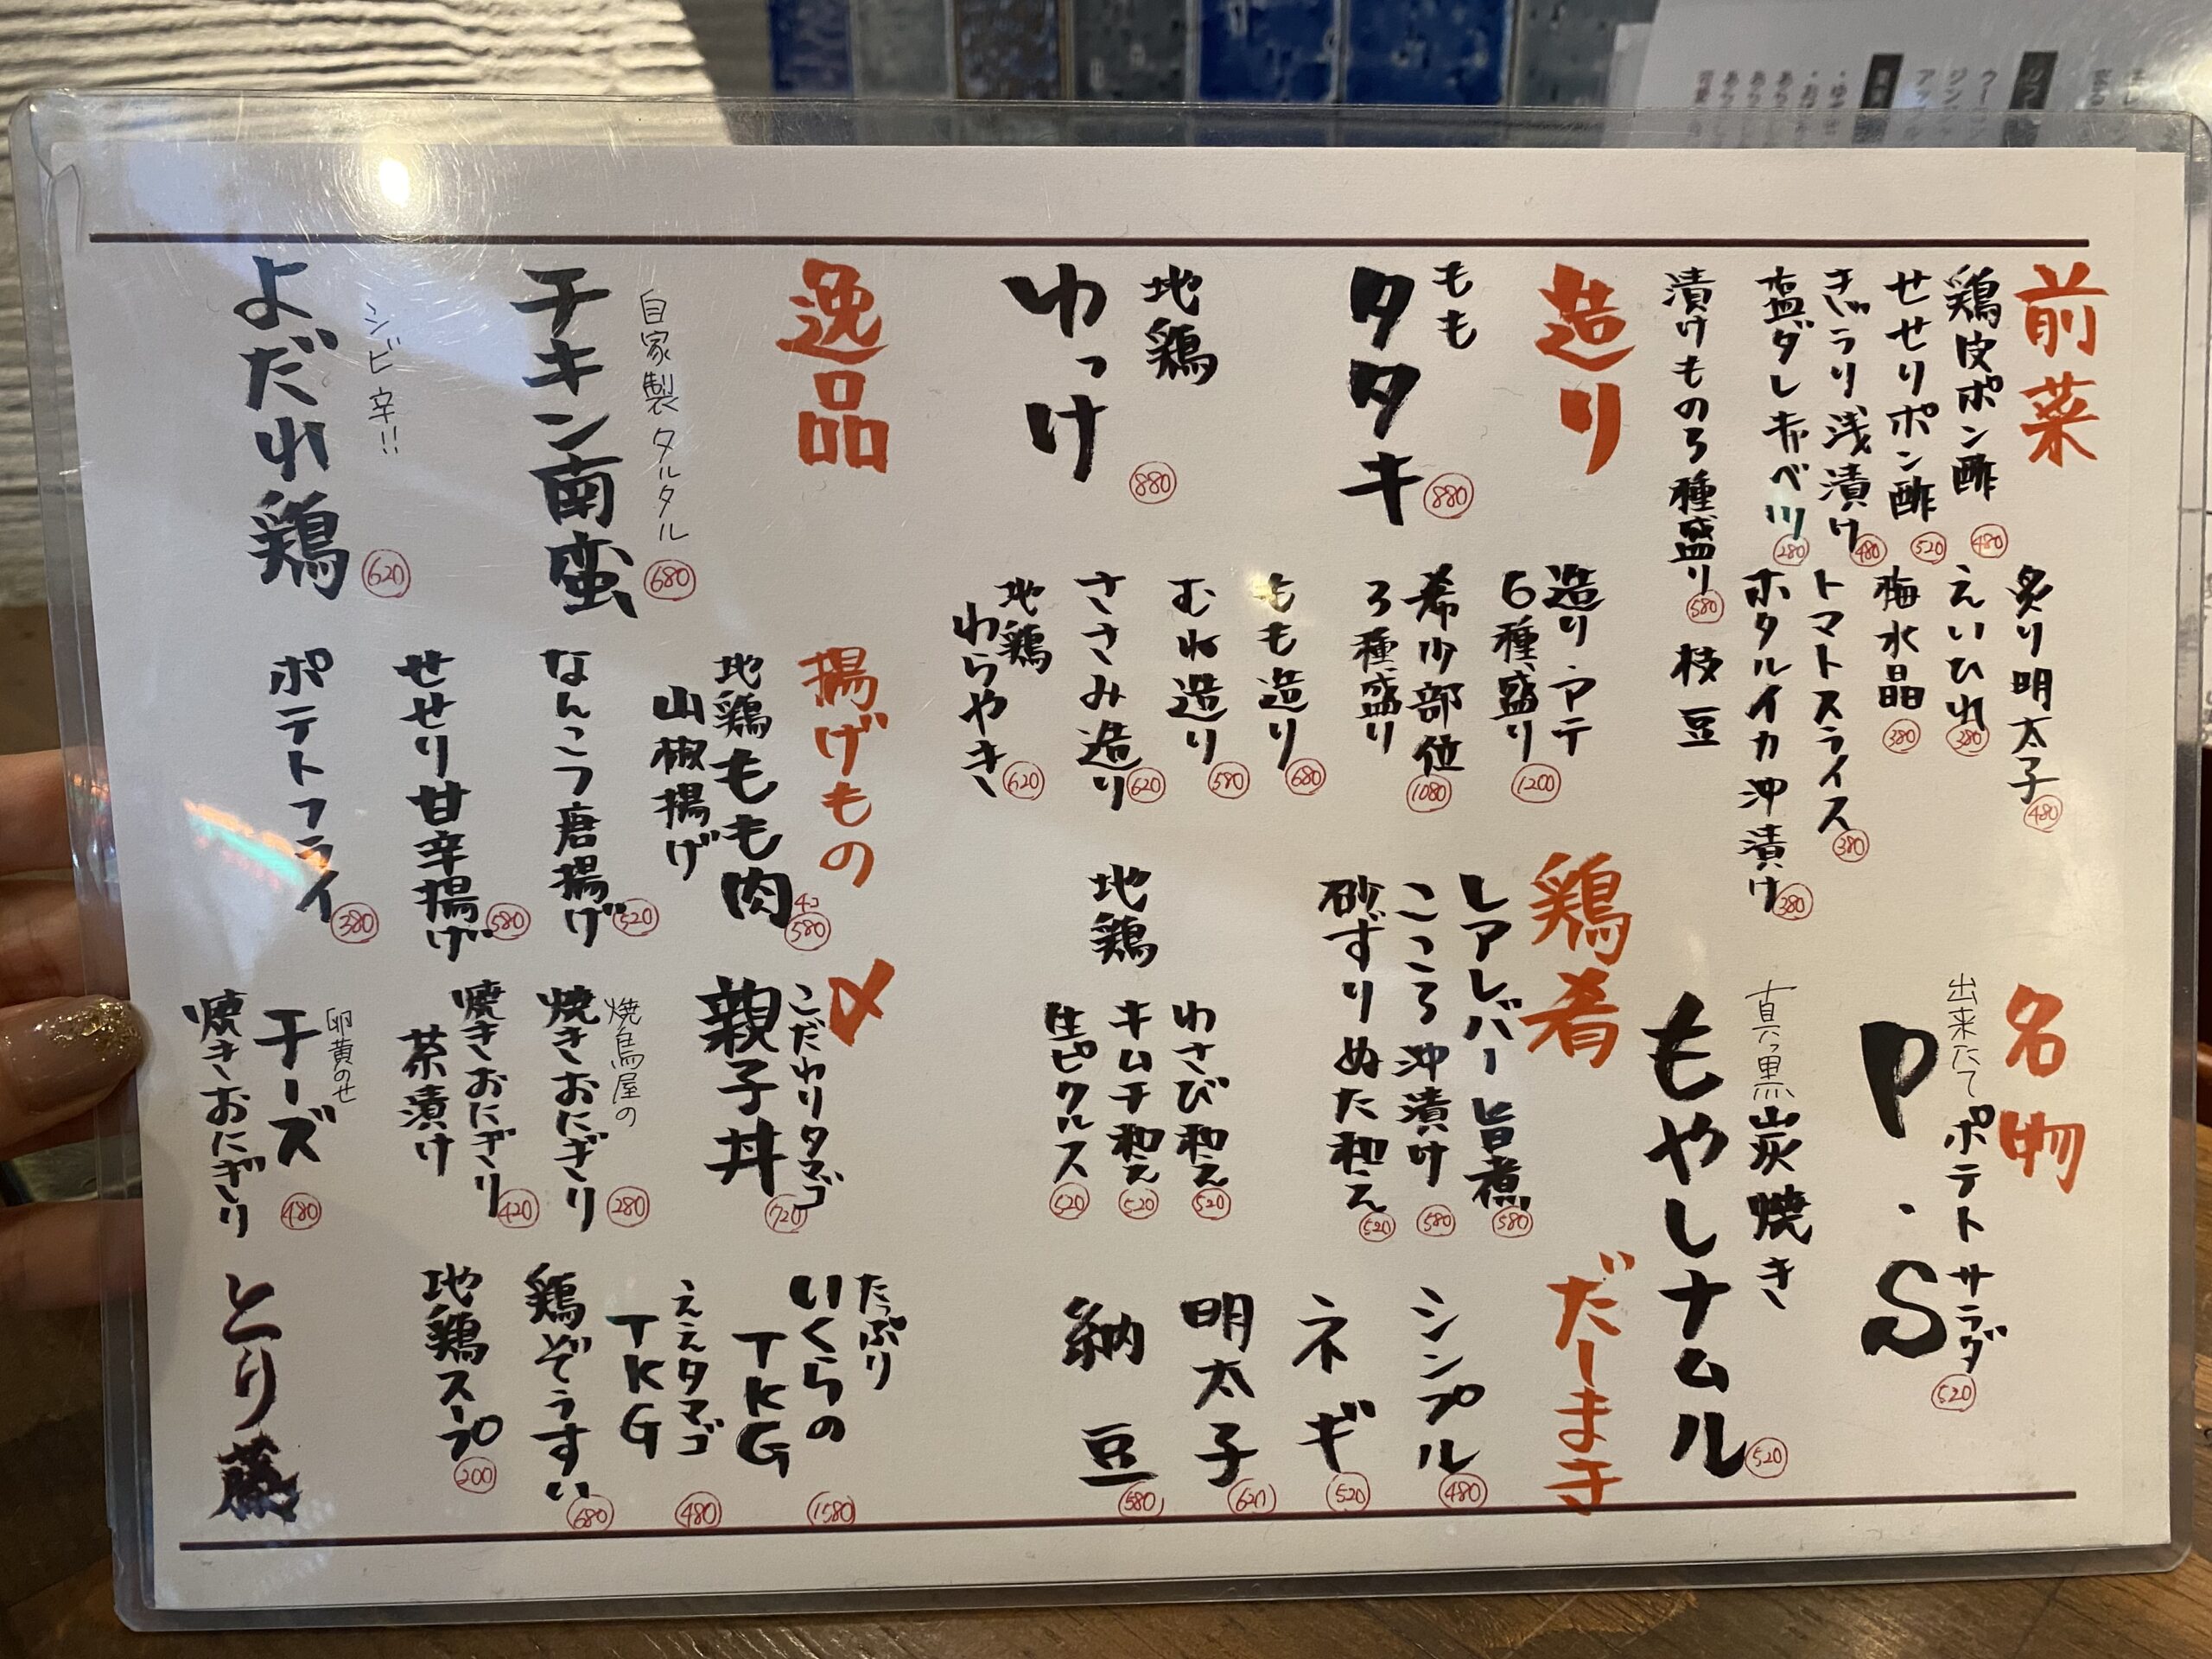 前菜
鶏皮ポン酢 480
せせりポン酢 520
きゅうり浅漬け 480
塩ダレキャベツ 280
漬けもの3種盛り 580
炙り明太子 480
えいひれ 380
梅水晶 380
トマトスライス 380
ホタルイカ沖漬け 380
枝豆
名物
出来たて ポテトサラダ
P・S 520
真っ黒 炭焼き
もやしナムル 520
造り
もも
タタキ 880
地鶏
ゆっけ 880
造り・アテ
6種盛り 1200
希少部位
3種盛り 1080
もも造り 680
むね造り 580
ささみ造り 620
地鶏
わらやき 620
鶏肴
レアレバー旨煮 580
こころ沖漬け 580
砂ずりぬた和え 520
地鶏
わさび和え 520
キムチ和え 520
生ピクルス 520
だしまき
シンプル 480
ネギ 520
明太子 620
納豆 580
逸品
自家製タルタル
チキン南蛮 680
シビ辛!!
よだれ鶏 620
揚げもの
地鶏もも肉
山椒揚げ 4コ 580
なんこつ唐揚げ 520
せせり甘辛揚げ 580
ポテトフライ 380
〆
こだわりタマゴ
親子丼 720
焼鳥屋の
焼きおにぎり 280
焼きおにぎり
茶漬け 420
卵黄のせ
チーズ
焼きおにぎり 480
たっぷり
いくらの
TKG 1580
ええタマゴ
TKG 480
鶏ぞうすい 680
地鶏スープ 200
とり蔵